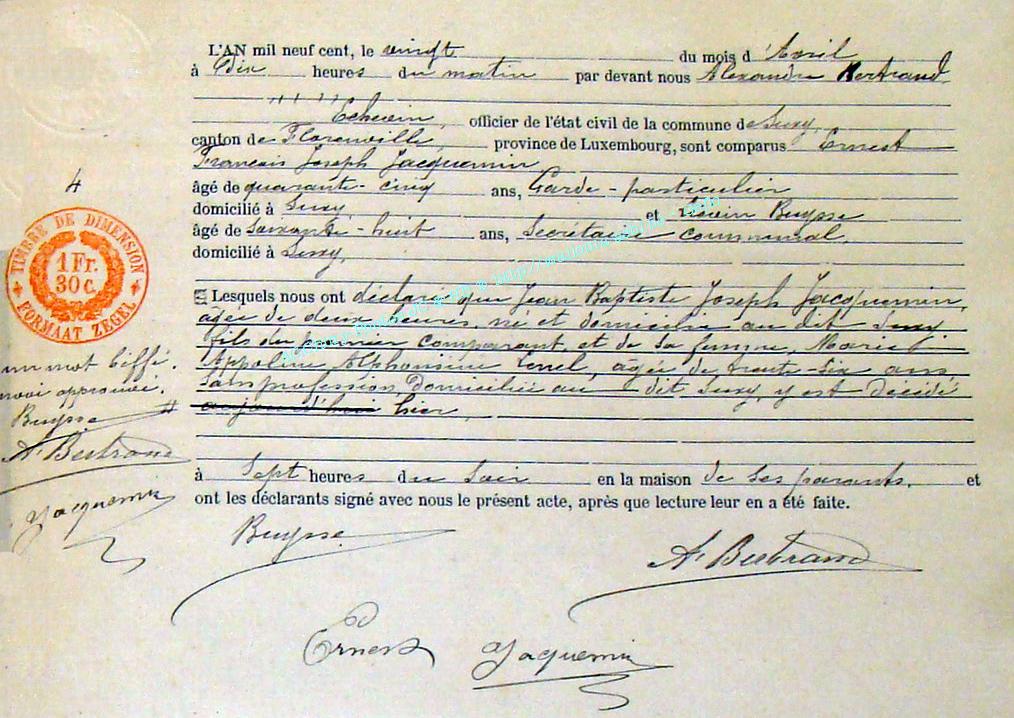 L'AN mil neuf cent, le vingt du mois d'Avril
à Dix heures du matin par devant nous Alexandre Bertrand
Echevin, officier de l'état civil de la commune de Suxy,
canton de Florenville, province de Luxembourg, sont comparus Ernest
François Joseph Jacquemin
âgé de quarante-cinq ans, Garde-particulier
domicilié à Suxy et Buysse
âgé de Soixante-huit ans, Secrétaire communal,
domicilié à Suxy,
Lesquels nous ont déclaré que Jean Baptiste Joseph Jacquemin,
agée de deux heures, né et domicilié au dit Suxy
fils du premier comparant, et de sa femme, Marie
Appoline Alphonsine agée de trente-six ans,
sans profession, Domiciliée au dit Suxy, y est décédé
aujourd'hui hier,
à Sept heures du Soir en la maison de ses parents. et
ont les déclarants signé avec nous le présent acte, après que lecture leur en a été faite.
Buysse
A. Bertrand
Ernest Jaquemin
4
TIMBRE DE DIMENSION
1 Fr.
30 C.
FORMAAT ZEGEL
un mot biffé.
approuvé.
Buysse
A. Bertrand
Jaquemin